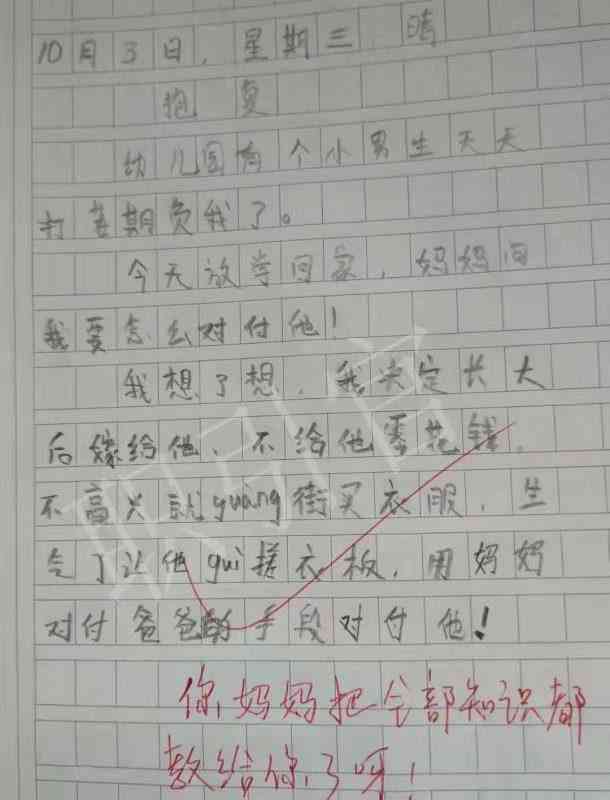 10月3日,星期三 晴
抱复
幼儿园有个小男生天天
打着期负我了。
今天放学回家,妈妈问
我要怎么对付他!
我想了想,我决定长大
后嫁给他、不给他零花钱,
不高兴就guàng街买衣服,生
气了让他guì搓衣板,用妈妈
对付爸爸的手段对付他!
你妈妈把全部知识都
教给你了呀!